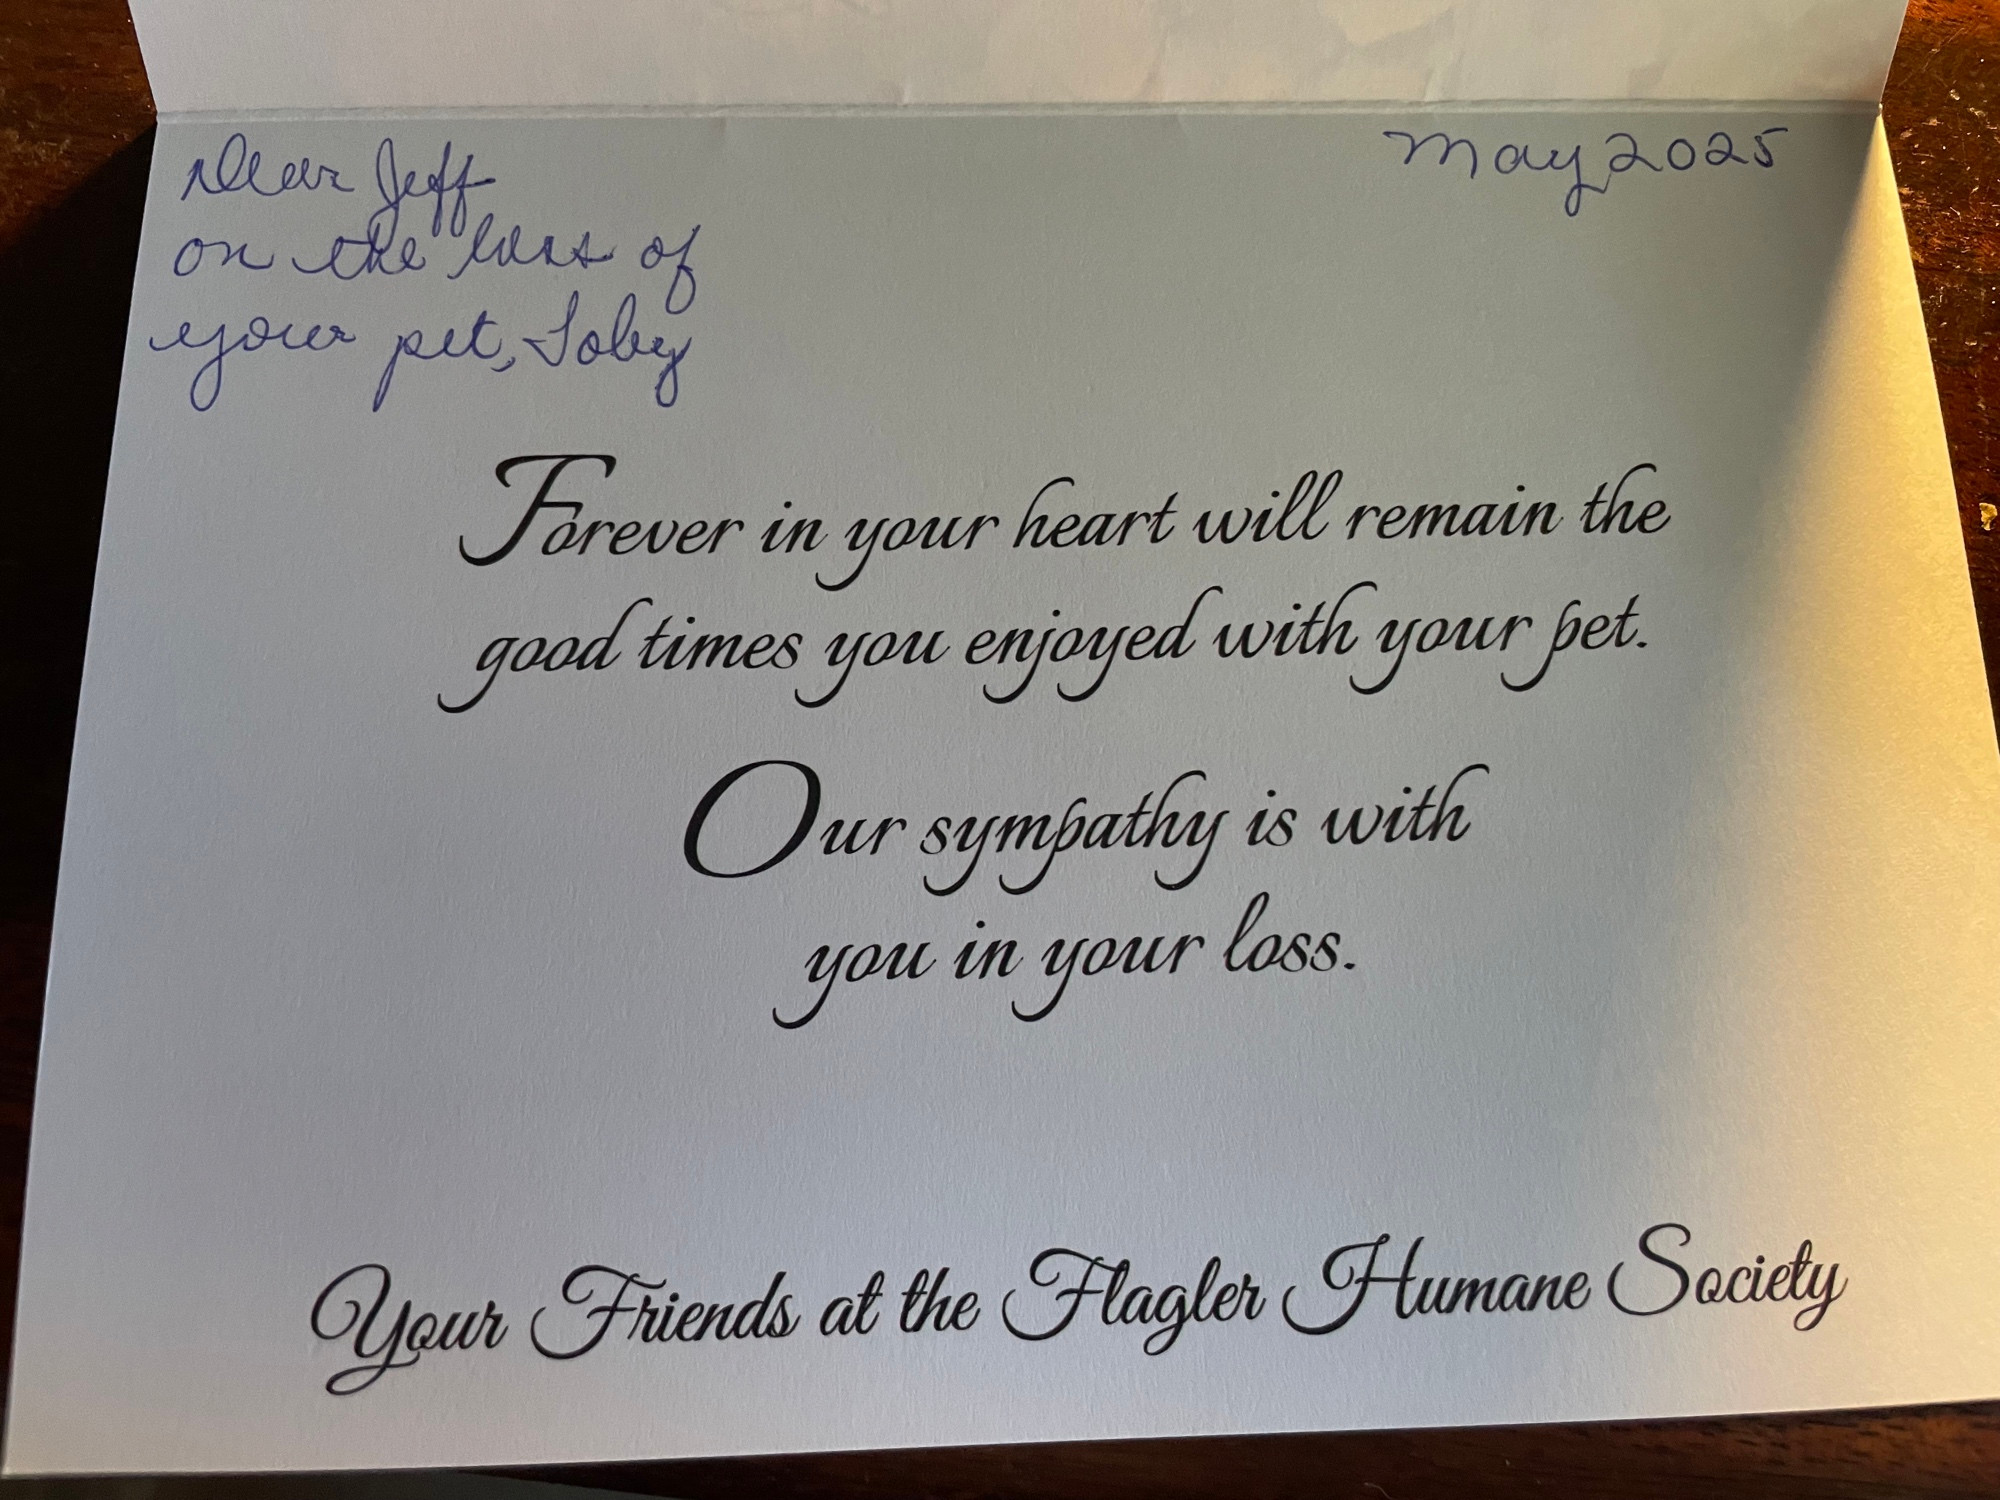 Dear Jeff
May 2025
on the loss of
your pet, Toby
Forever in your heart will remain the
good times you enjoyed with your pet.
Our sympathy is with
you in your loss.
Your Friends at the Flagler Humane Society